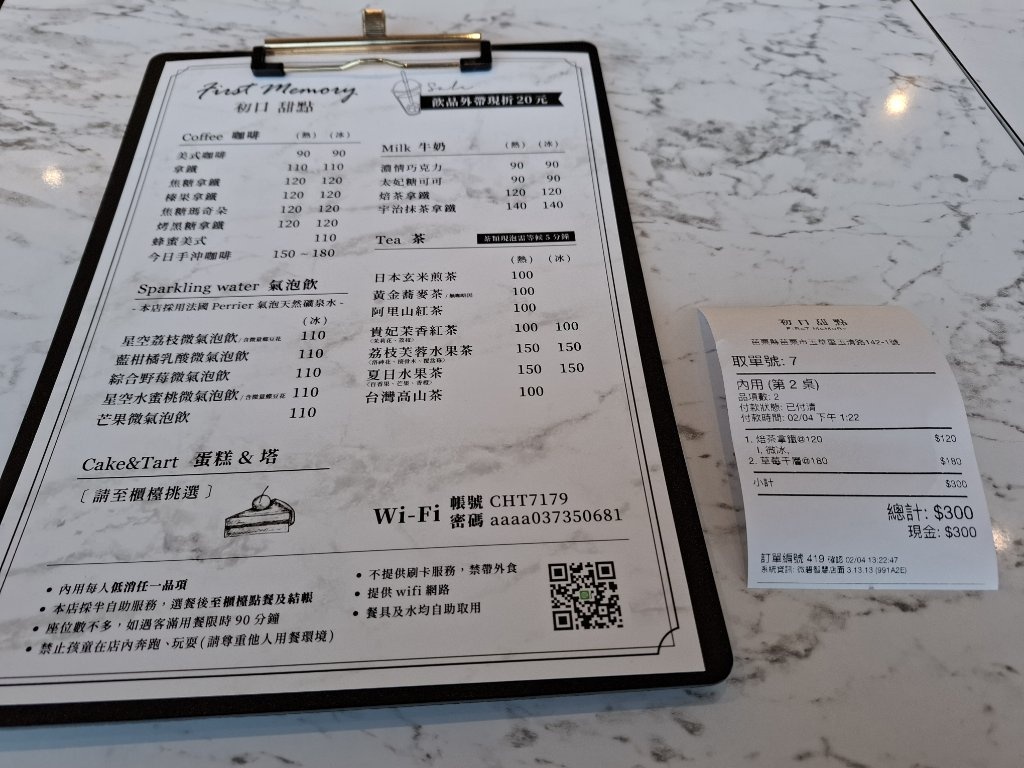 First Memory
初日 甜點
Sale
飲品外帶現折 20 元
Coffee 咖啡 (熱) (冰)
美式咖啡 90 90
拿鐵 110 110
焦糖拿鐵 120 120
榛果拿鐵 120 120
焦糖瑪奇朵 120 120
烤黑糖拿鐵 120 120
蜂蜜美式 110
今日手沖咖啡 150 ~ 180
Sparkling water 氣泡飲
- 本店採用法國 Perrier 氣泡天然礦泉水 -
(冰)
星空荔枝微氣泡飲 /含微量蝶豆花 110
藍柑橘乳酸微氣泡飲 110
綜合野莓微氣泡飲 110
星空水蜜桃微氣泡飲 /含微量蝶豆花 110
芒果微氣泡飲 110
Cake&Tart 蛋糕 & 塔
〔 請至櫃檯挑選 〕
Milk 牛奶 (熱) (冰)
濃情巧克力 90 90
太妃糖可可 90 90
焙茶拿鐵 120 120
宇治抹茶拿鐵 140 140
Tea 茶 茶類現泡需等候 5 分鐘
(熱) (冰)
日本玄米煎茶 100
黃金蕎麥茶 /無咖啡因 100
阿里山紅茶 100
貴妃茉香紅茶 100 100
(茉莉花、荔枝)
荔枝芙蓉水果茶 150 150
夏日水果茶 150 150
(百香果、芒果、香橙)
台灣高山茶 100
Wi-Fi 帳號 CHT7179
密碼 aaaa037350681
• 內用每人低消任一品項
• 本店採半自助服務，選餐後至櫃檯點餐及結帳
• 座位數不多，如遇客滿用餐限時 90 分鐘
• 禁止孩童在店內奔跑、玩耍 (請尊重他人用餐環境)
• 不提供刷卡服務，禁帶外食
• 提供 wifi 網路
• 餐具及水均自助取用
初日甜點
First Memory
苗栗縣苗栗市上苗里上清路142-1號
取單號: 7
內用 (第 2 桌)
品項數: 2
付款狀態: 已付清
付款時間: 02/04 下午 1:22
1. 焙茶拿鐵@120 $120
1. 微冰,
2. 草莓千層@180 $180
小計 $300
總計: $300
現金: $300
訂單編號 419 確認 02/04 13:22:47
系統資訊: 微碧智慧店面 3.13.13 (991A2E)